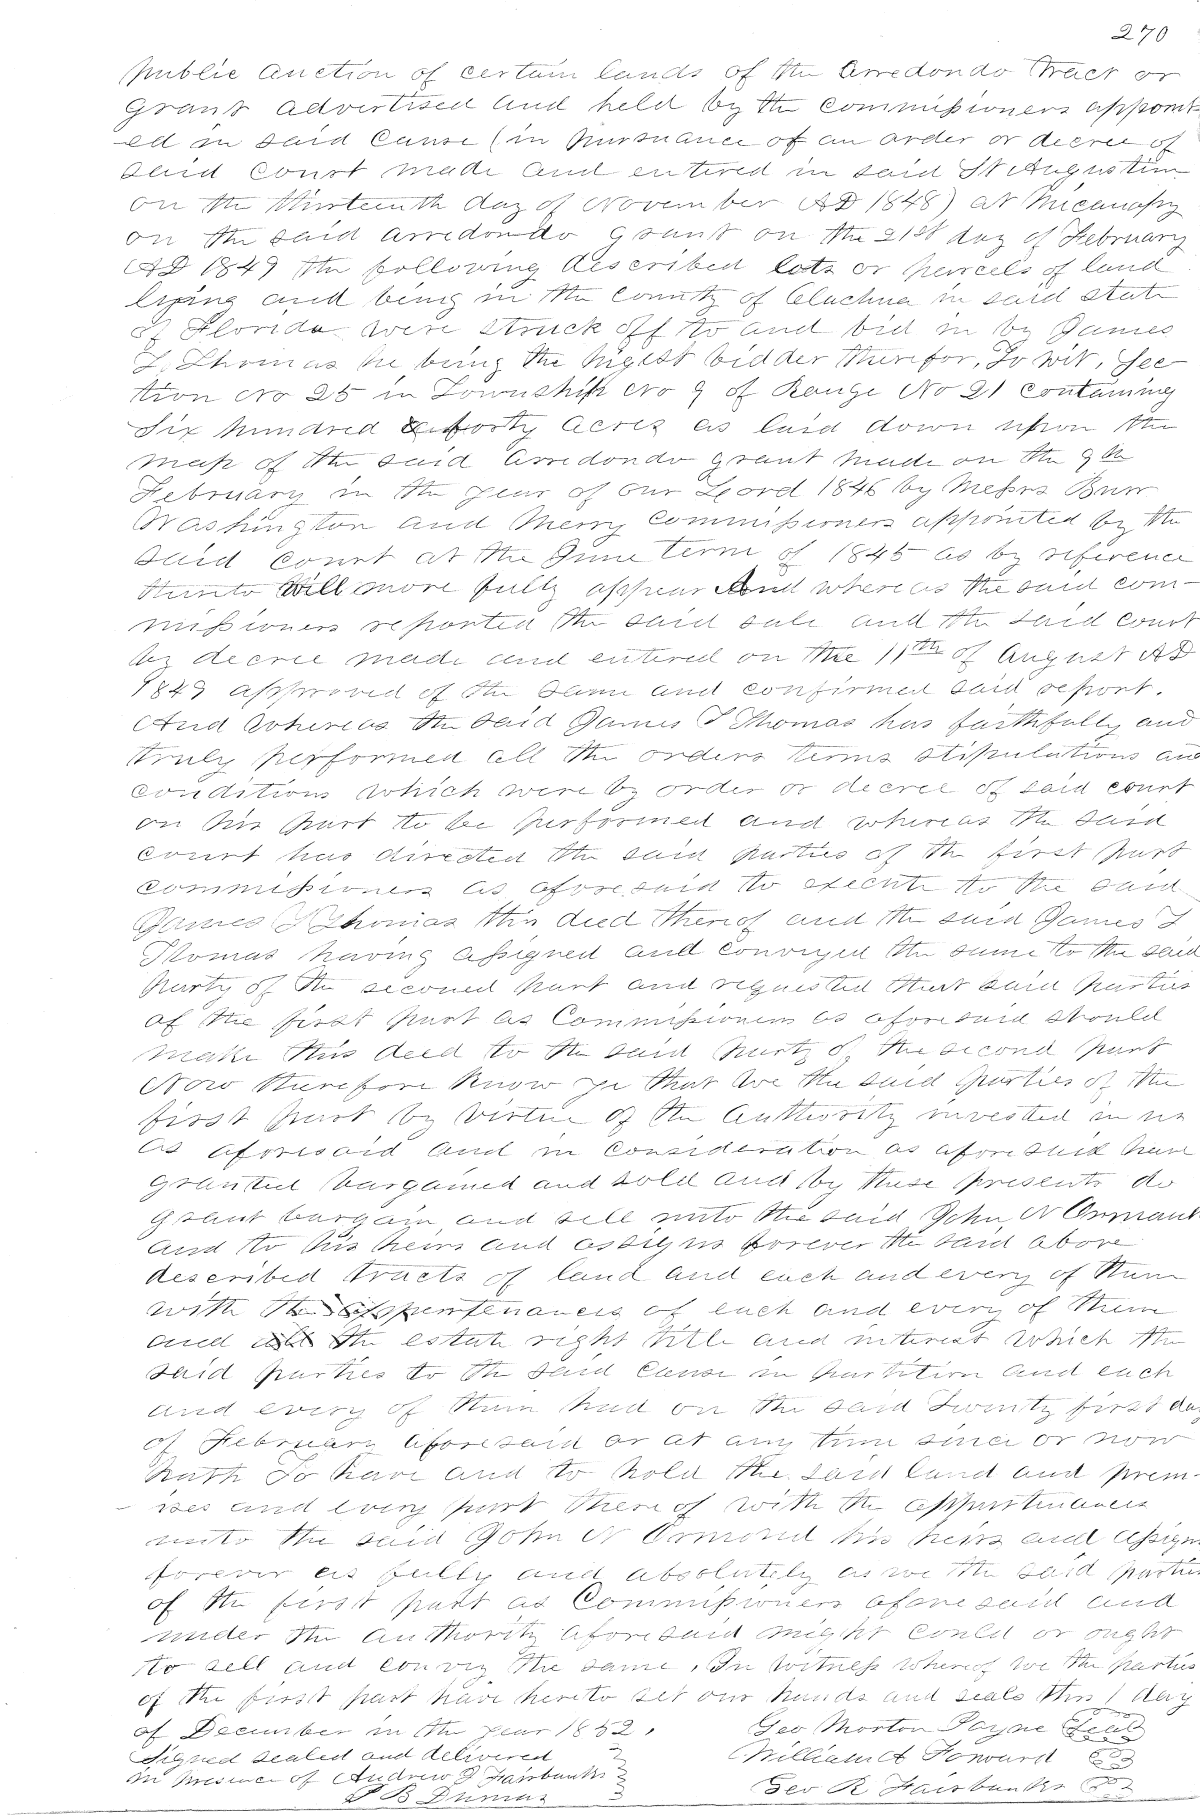 270
public auction of certain lands of the Arredondo Tract or
Grant advertised and held by the commissioners appoint
-ed in said Cause (in pursuance of an order or decree of
said court made and entered in said St Augustine
on the thirteenth day of November AD 1848) at Micanopy
on the said Arredondo grant on the 21st day of February
AD 1849 the following described lots or parcels of land
lying and being in the County of Alachua in said state
of Florida were struck off to and bid in by James
T. Thomas he being the higest bidder therefor, To wit, Sec
tion No 25 in Township No 9 of Range No 21 containing
Six hundred & forty acres as laid down upon the
map of the said Arredondo grant made on the 9th
February in the year of our Lord 1846 by Messrs Burr
Washington and Merry Commissioners appointed by the
said court at the June term of 1845 as by reference
thereto will more fully appear And whereas the said com-
missioners reported the said sale and the said court
by decree made and entered on the 11th of August AD
1849 approved of the same and confirmed said report.
And whereas the said James T Thomas has faithfully and
truly performed all the orders terms stipulations and
conditions which were by order or decree of said court
on his part to be performed and whereas the said
court has directed the said parties of the first part
commissioners as aforesaid to execute to the said
James T Thomas this deed thereof and the said James T
Thomas having assigned and conveyed the same to the said
party of the second part and requested that said parties
of the first part as Commissioners as aforesaid should
make this deed to the said party of the second part
Now therefore know ye that we the said parties of the
first part by virtue of the authority invested in us
as aforesaid and in consideration as aforesaid have
granted bargained and sold and by these presents do
grant bargain and sell unto the said John N Ormant
and to his heirs and assigns forever the said above
described tracts of land and each and every of them
with the appurtenances of each and every of them
and all the estate right title and interest which the
said parties to the said cause in partition and each
and every of them had on the said Twenty first day
of February aforesaid or at any time since or now
hath To have and to hold the said land and prem-
-ises and every part thereof with the appurtenances
unto the said John N Ormond his heirs and assigns
forever as fully and absolutely as we the said parties
of the first part as Commissioners aforesaid and
under the authority aforesaid might could or ought
to sell and convey the same. In witness whereof we the parties
of the first part have hereto set our hands and seals this 1 day
of December in the year 1852. Geo Morton Payne Seal
Signed sealed and delivered William A Forward
in presence of Andrew J Fairbanks Geo R Fairbanks
P B Dumas